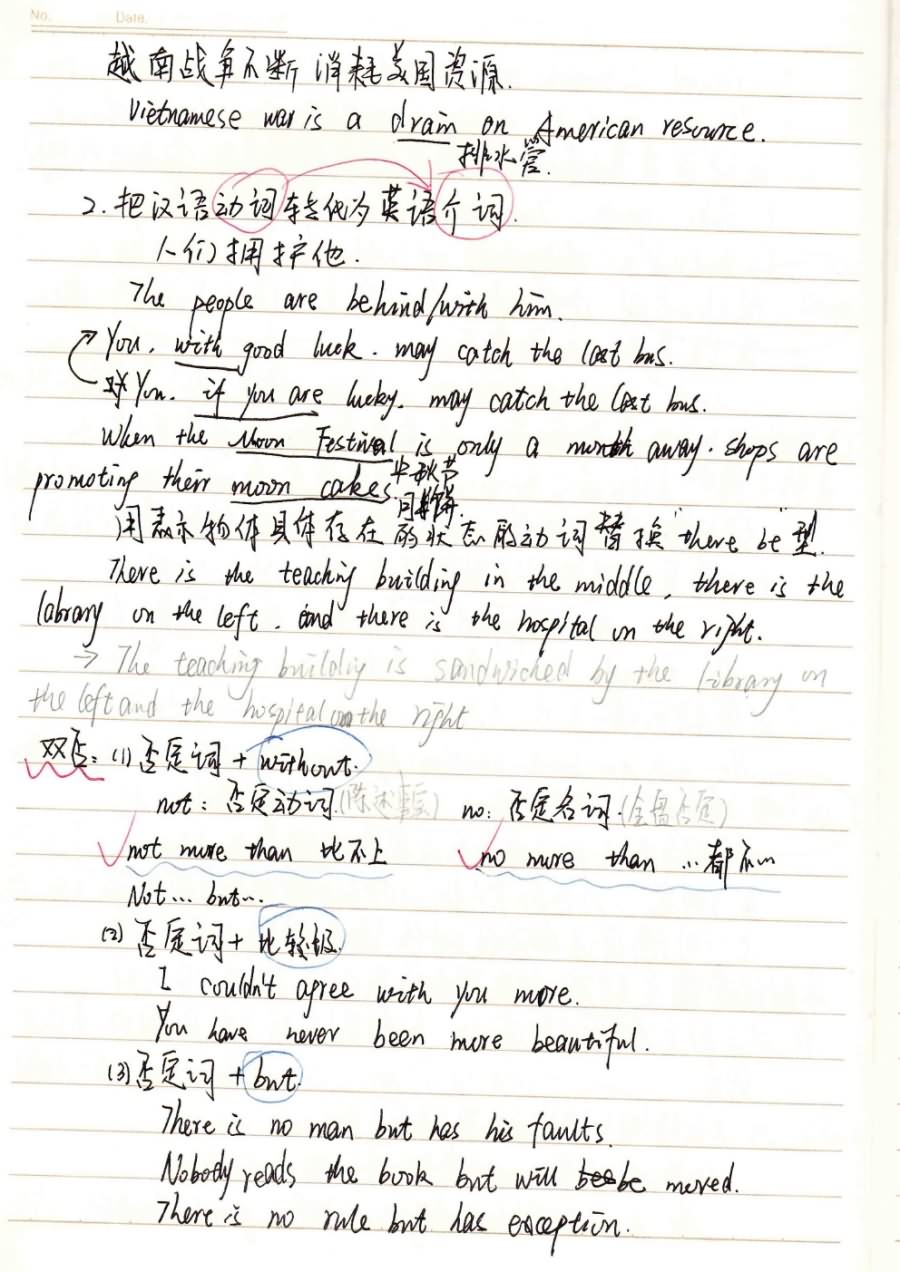 No. Date.
越南战争不断消耗美国资源.
Vietnamese war is a drain on American resource.
排水管.
2. 把汉语动词转化为英语介词.
人们拥护他.
The people are behind/with him.
You, with good luck, may catch the last bus.
对 You, if you are lucky, may catch the last bus.
When the Moon Festival is only a month away, shops are
中秋节
promoting their moon cakes.
月饼.
用表示物体具体存在的状态的动词替换"there be"型.
There is the teaching building in the middle, there is the
labrary on the left, and there is the hospital on the right.
→ The teaching building is sandwiched by the library on
the left and the hospital on the right
双否: (1) 否定词 + without.
not: 否定动词.(陈述事实) no: 否定名词.(全盘否定)
not more than 比不上 no more than …都不…
Not… but…
(2) 否定词 + 比较级.
I couldn't agree with you more.
You have never been more beautiful.
(3) 否定词 + but.
There is no man but has his faults.
Nobody reads the book but will be moved.
There is no rule but has exception.